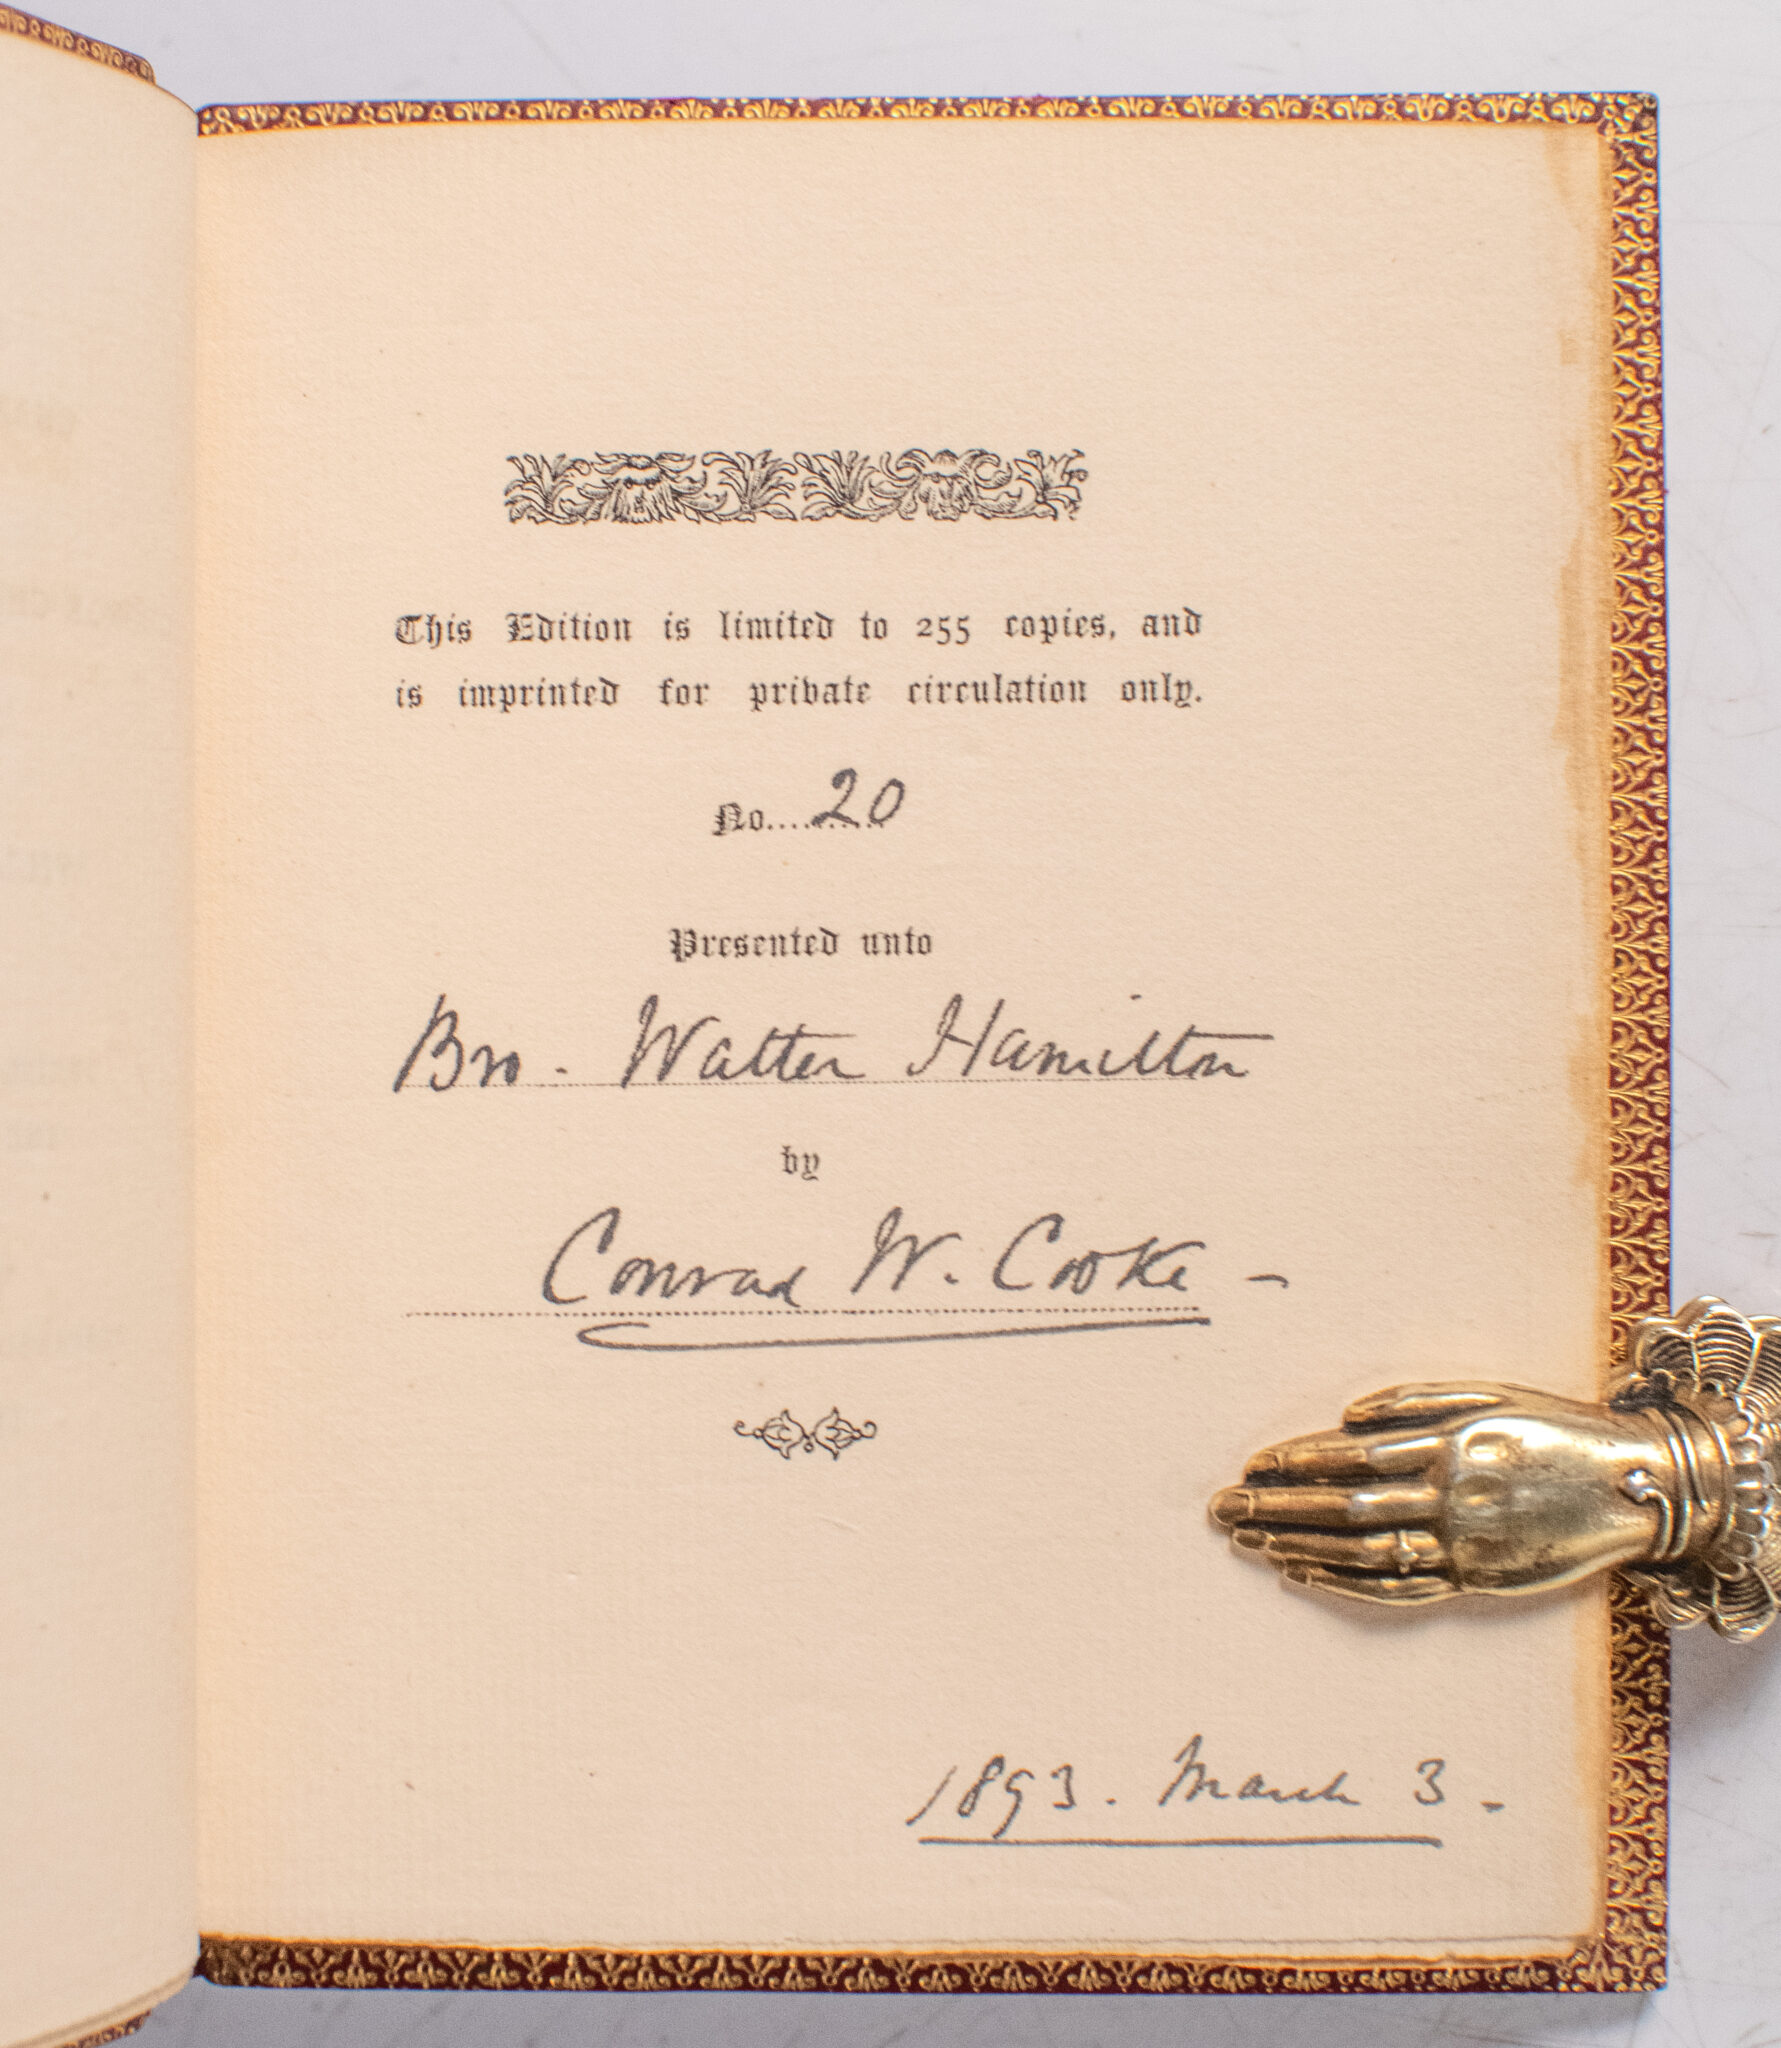 This Edition is limited to 255 copies, and
is imprinted for private circulation only.
No..........20
Presented unto
Bro. Walter Hamilton
by
Conrad W. Cooke -
1893. March 3 -